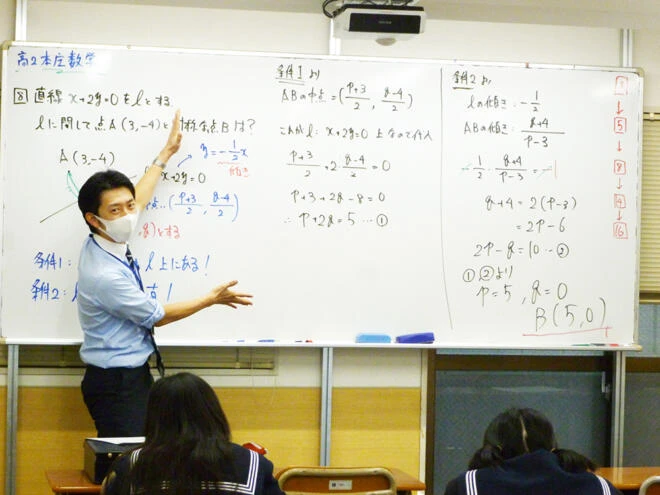 高2本庄数学
8 直線 x+2y=0 を l とする
l に関して点 A(3,-4) と対称な点 B は?
A(3,-4)
y=-1/2x
傾き
x+2y=0
(p+3/2, q-4/2)
とする
条件1: l 上にある!
条件2: l
条件1 より
ABの中点=(p+3/2, q-4/2)
これが l: x+2y=0 上なので代入
p+3/2+2・q-4/2=0
p+3+2q-8=0
∴ p+2q=5 … ①
条件2 より
l の傾き: -1/2
ABの傾き: q+4/p-3
-1/2・q+4/p-3=-1
q+4=2(p-3)
=2p-6
2p-q=10 … ②
①,②より
p=5, q=0
B(5,0)
↓
5
↓
8
↓
4
↓
16